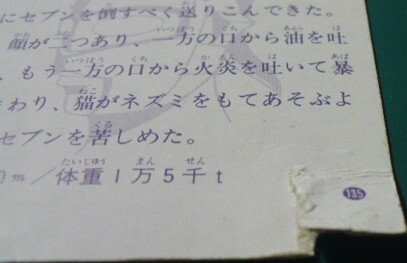 にセブンを倒すべく送りこんできた。
顔が二つあり、一方の口から油を吐
、もう一方の口から火炎を吐いて暴
まわり、猫がネズミをもてあそぶよ
セブンを苦しめた。
0m/体重1万5千t
135